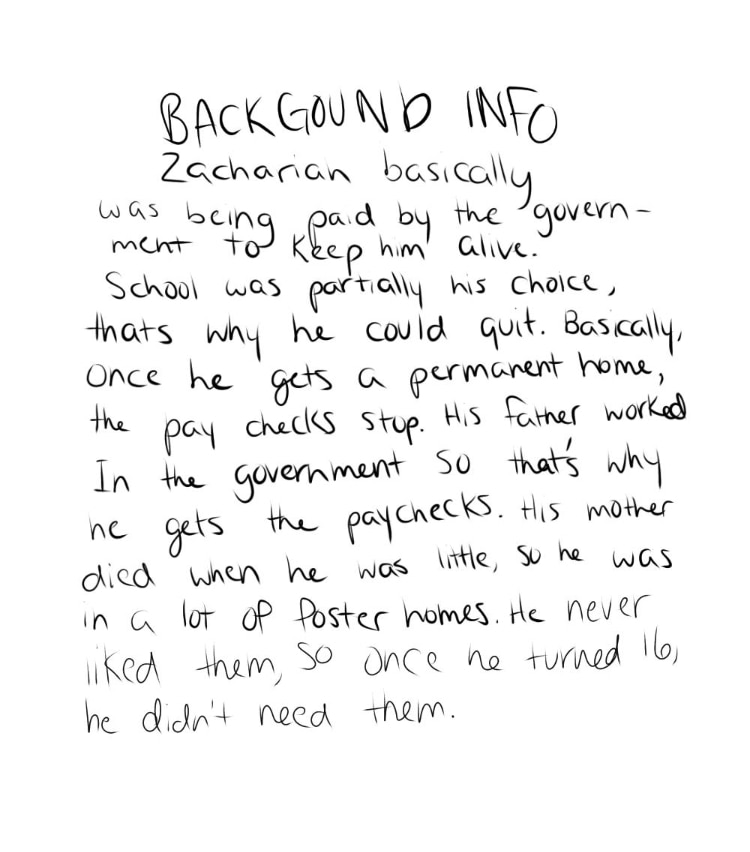 BACKGOUND INFO
Zachariah basically
was being paid by the govern-
ment to keep him alive.
School was partially his choice,
thats why he could quit. Basically,
Once he gets a permanent home,
the pay checks stop. His father worked
In the government so that's why
he gets the paychecks. His mother
died when he was little, so he was
in a lot of foster homes. He never
liked them, so once he turned 16,
he didn't need them.